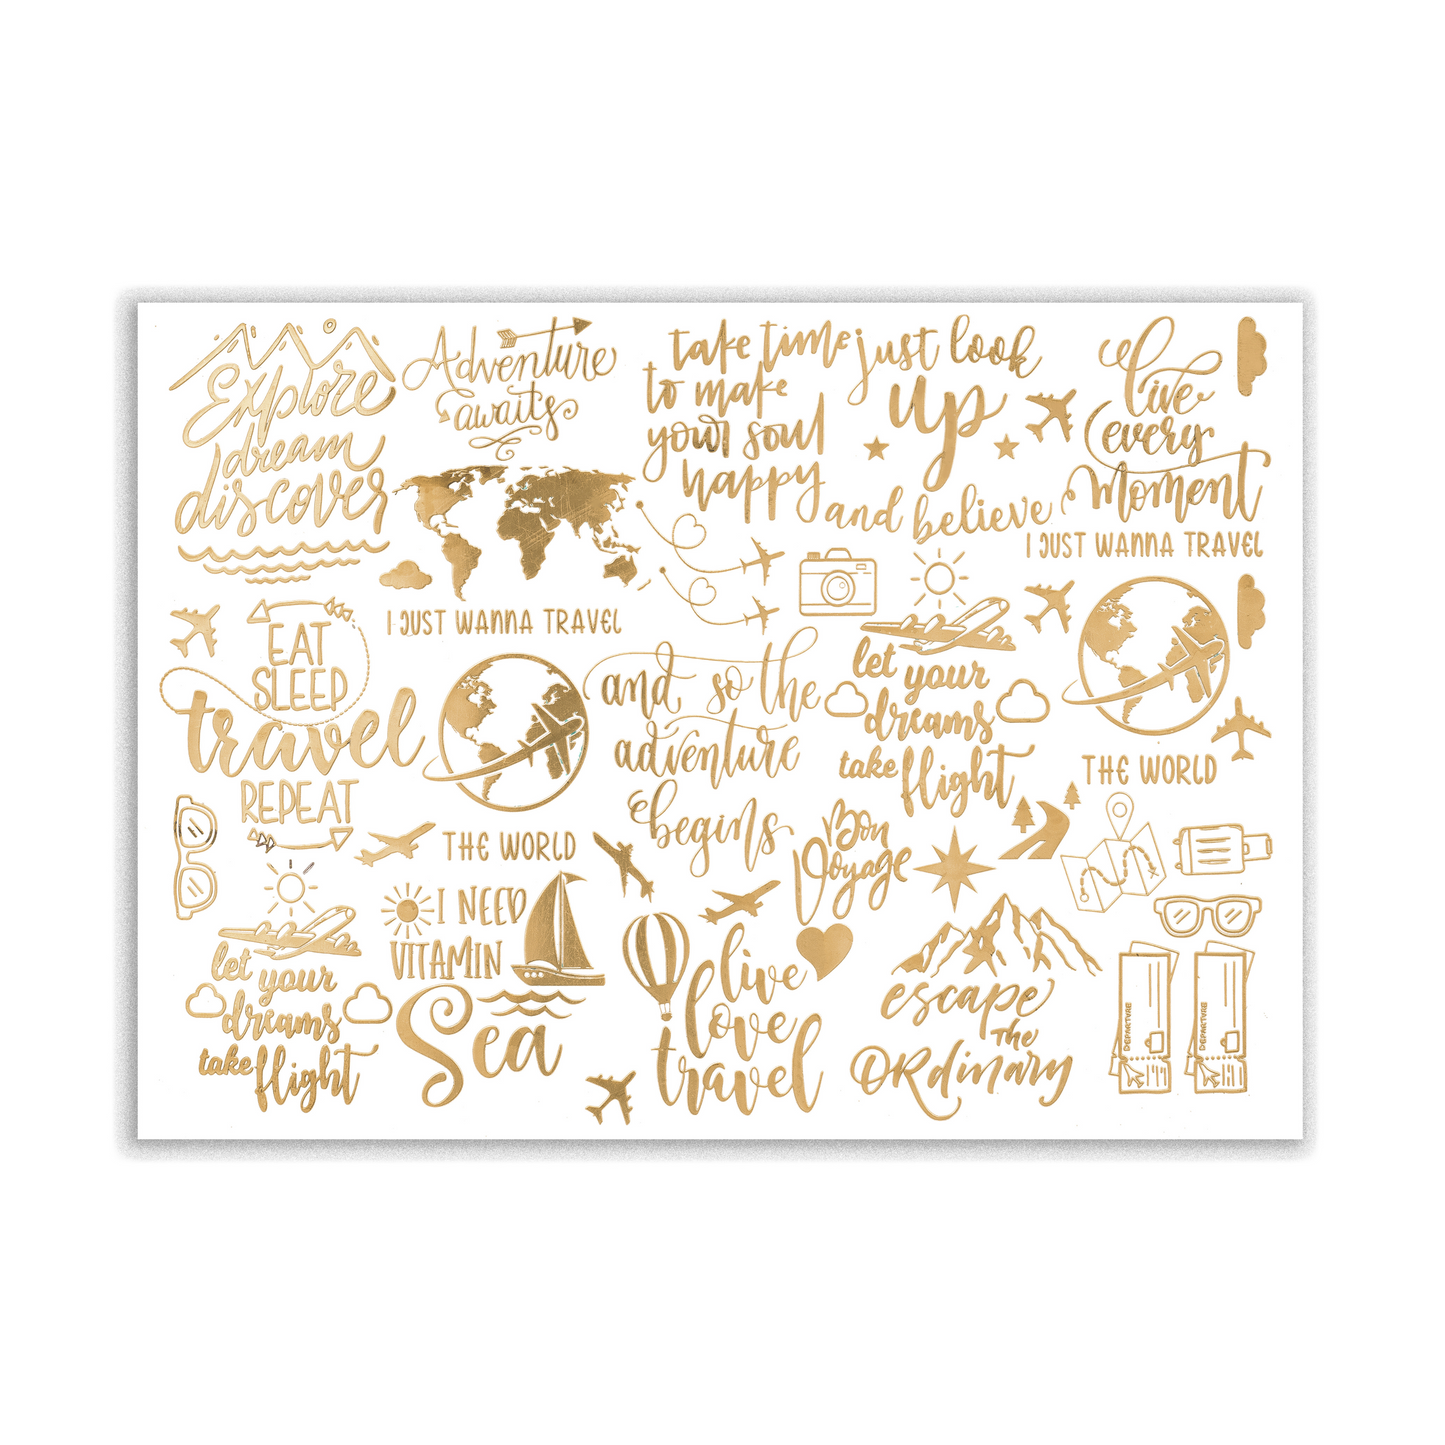 Explore
dream
discover
Adventure
awaits
take time
to make
your soul
happy
just look
up
and believe
live
every
moment
I JUST WANNA TRAVEL
I JUST WANNA TRAVEL
EAT
SLEEP
travel
REPEAT
THE WORLD
and so the
adventure
begins
let your
dreams
take flight
THE WORLD
Bon
Voyage
let your
dreams
take flight
I NEED
VITAMIN
Sea
live
love
travel
escape
The
ORdinary
DEPARTURE
DEPARTURE